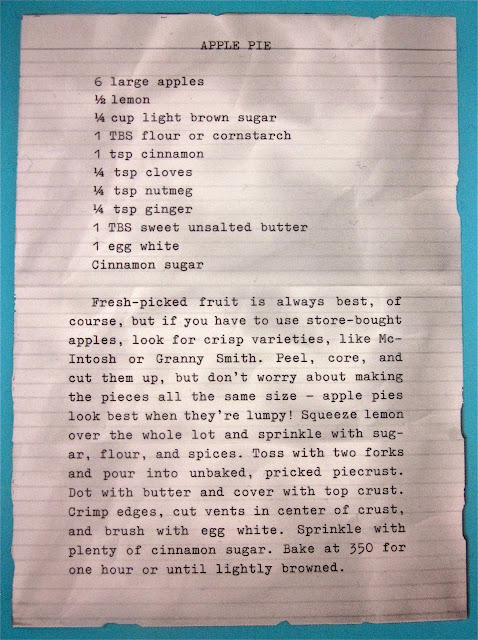 APPLE PIE
6 large apples
½ lemon
¼ cup light brown sugar
1 TBS flour or cornstarch
1 tsp cinnamon
¼ tsp cloves
¼ tsp nutmeg
¼ tsp ginger
1 TBS sweet unsalted butter
1 egg white
Cinnamon sugar
Fresh-picked fruit is always best, of
course, but if you have to use store-bought
apples, look for crisp varieties, like Mc-
Intosh or Granny Smith. Peel, core, and
cut them up, but don't worry about making
the pieces all the same size – apple pies
look best when they're lumpy! Squeeze lemon
over the whole lot and sprinkle with sug-
ar, flour, and spices. Toss with two forks
and pour into unbaked, pricked piecrust.
Dot with butter and cover with top crust.
Crimp edges, cut vents in center of crust,
and brush with egg white. Sprinkle with
plenty of cinnamon sugar. Bake at 350 for
one hour or until lightly browned.